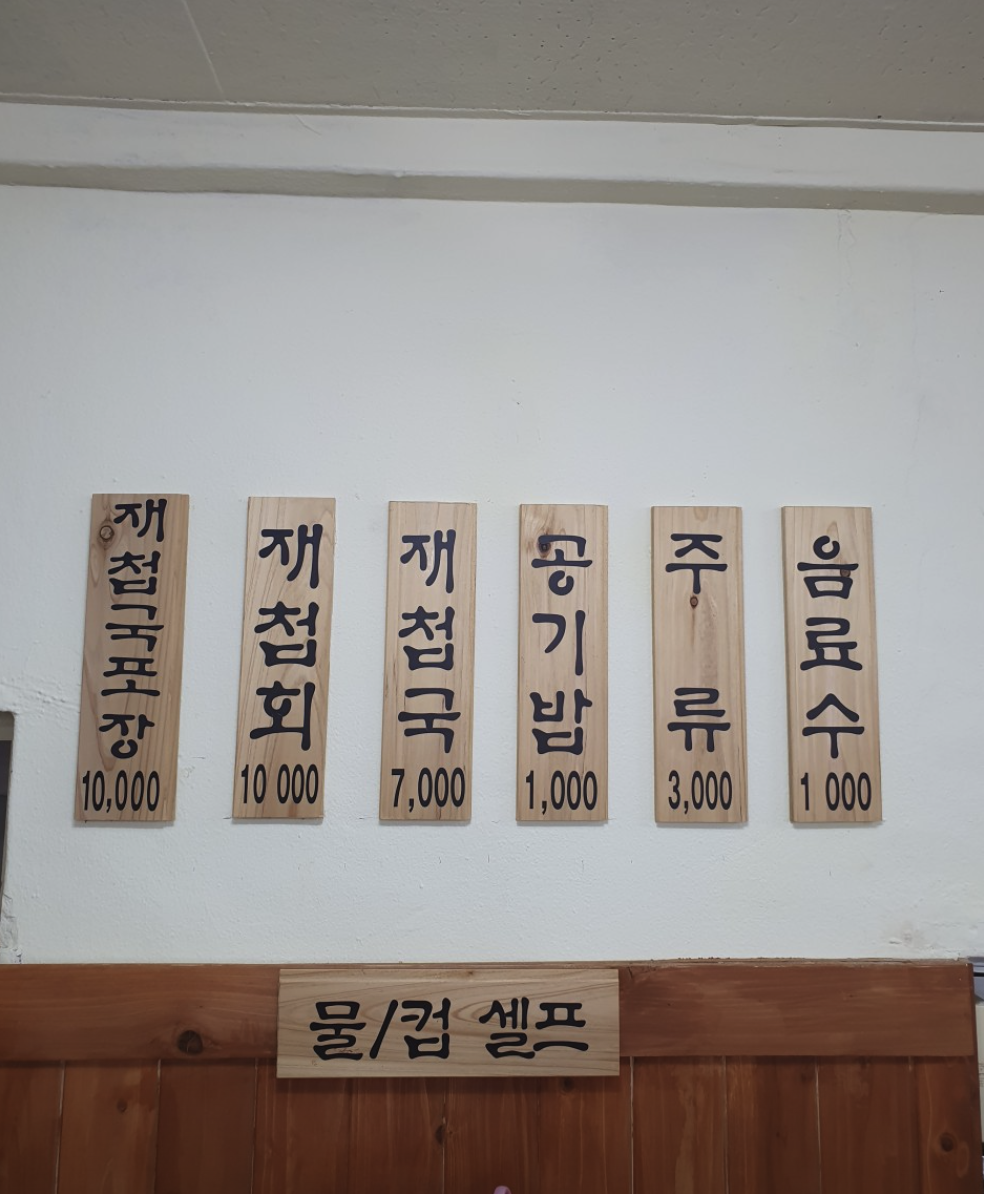 재첩국포장
10,000
재첩회
10 000
재첩국
7,000
공기밥
1,000
주류
3,000
음료수
1 000
물/컵 셀프